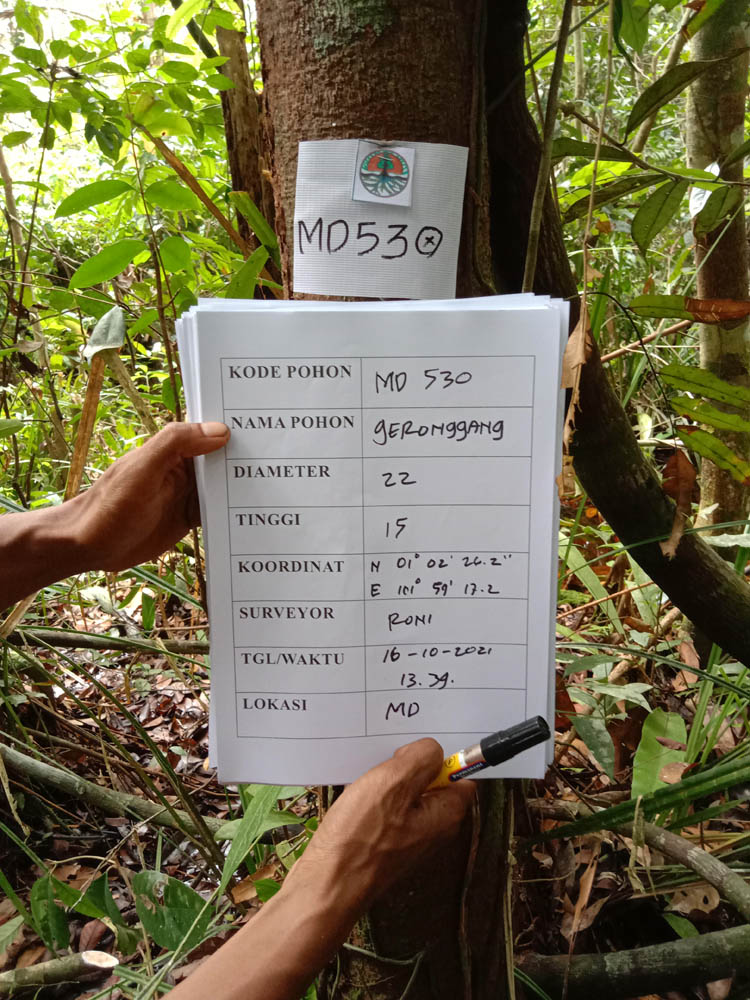 MD530
KODE POHON MD 530
NAMA POHON gERONggANg
DIAMETER 22
TINGGI 15
KOORDINAT N 01° 02' 26.2"
E 101° 59' 17.2
SURVEYOR RONI
TGL/WAKTU 16-10-2021
13.39.
LOKASI MD